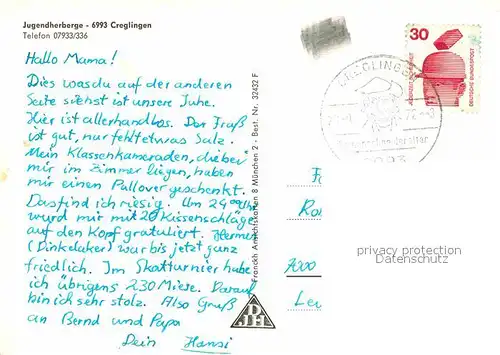 Jugendherberge - 6993 Creglingen
Telefon 07933/336
Hallo Mama!
Dies was du auf der anderen
Seite siehst ist unsere Juhe.
Hier ist allerhand los. Der Fraß
ist gut, nur fehlt etwas Salz.
Mein Klassenkameraden, die bei
mir im Zimmer liegen, haben
mir einen Pallover geschenkt.
Das find ich riesig. Um 24 00 Uhr
wurd mir mit 20 Kissenschläge
auf den Kopf gratuliert. Hermes
(Dinkdaker) war bis jetzt ganz
friedlich. Im Skatturnier habe
ich übrigens 230 Miese. Darauf
bin ich sehr stolz. Also Gruß
an Bernd und Papa
Dein Hansi
Franckh Ansichtskarten 8 München 2 - Best. Nr. 32432 F
DJH
CREGLINGEN
6993
30
DEUTSCHE BUNDESPOST
7000
privacy protection
Datenschutz